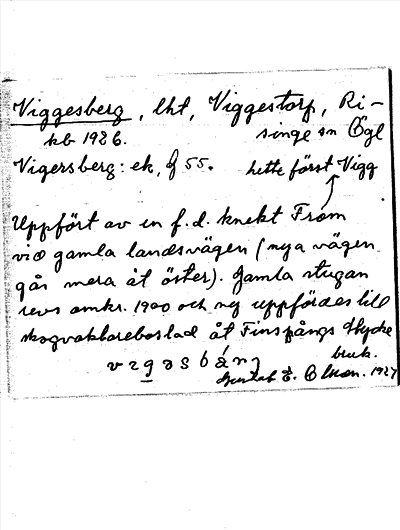 Viggesberg, lht, Viggestorp, Ri-
kb 1926. singe sn Ögl
Vigersberg: ek, g 55. hette först Vigg
Uppfört av en f.d. knekt From
vid gamla landsvägen (nya vägen
går mera åt öster). Gamla stugan
revs omkr. 1900 och ny uppfördes till
skogvaktarebostad åt Finspångs Stycke
bruk.
Gustaf E. Olson. 1927